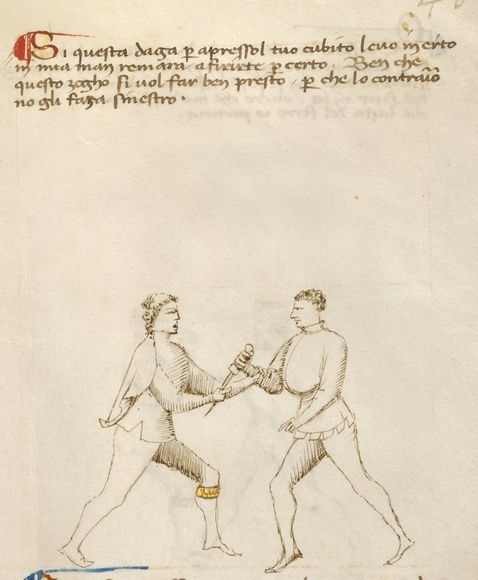 Si questa daga p apressol tuo cubito levo in erto
in mia man remara a firirte p certo. Ben che
questo zogho si vol far ben presto, p che lo contrario
no gli faza sinestro.